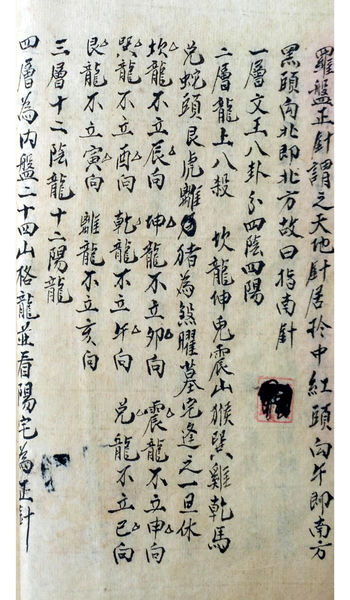 羅盤正針謂之天地針居於中紅頭向午即南方
黑頭向北即北方故曰指南針
一層文王八卦分四陰四陽
二層龍上八殺 坎龍坤兔震山猴巽雞乾馬
兌蛇頭艮虎離豬為煞曜墓宅逢之一旦休
坎龍不立辰向 坤龍不立卯向 震龍不立申向
巽龍不立酉向 乾龍不立午向 兌龍不立巳向
艮龍不立寅向 離龍不立亥向
三層十二陰龍十二陽龍
四層為內盤二十四山格龍並看陽宅為正針